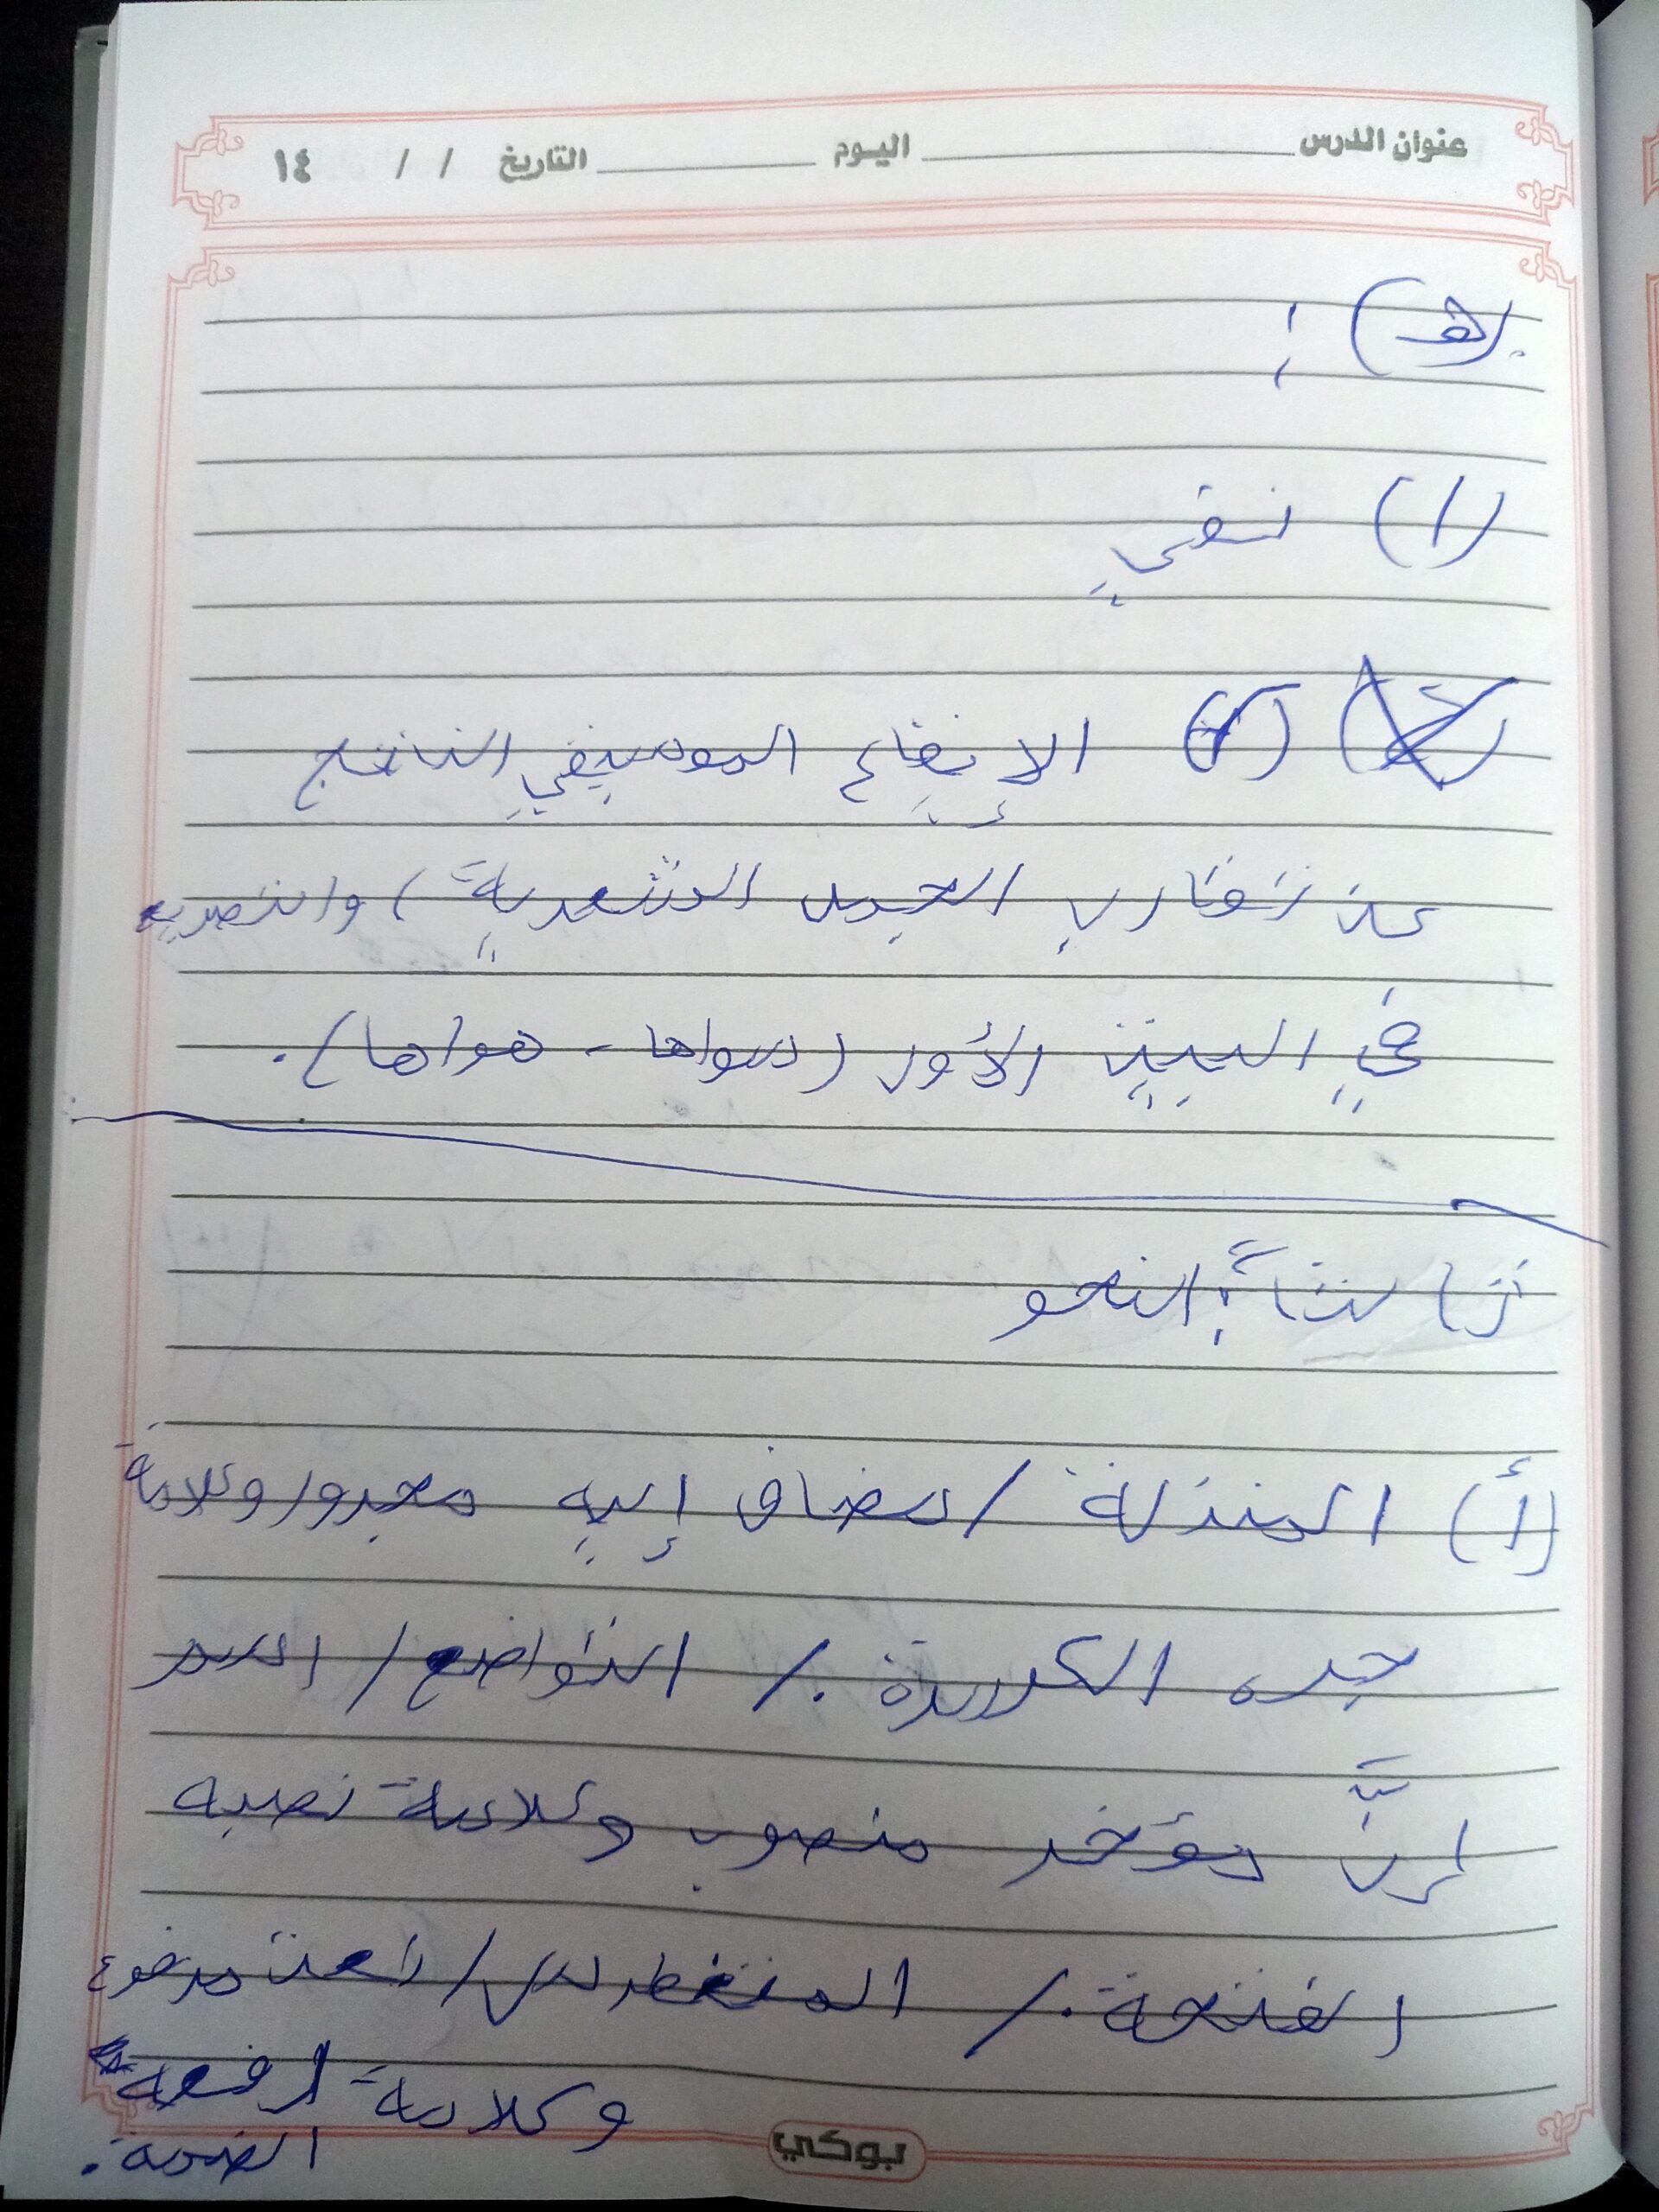 عنوان الدرس اليوم التاريخ / / ١٤
(هـ) :
(١) نفي
(٢) الإيقاع الموسيقي الناتج
عن تقارب الجمل الشعرية، والتصريع
في البيت الأول (سواها - هواها).
ثالثاً: النحو
(أ) المنزلة / مضاف إليه مجرور وعلامة
جره الكسرة. / التواضع / اسم
إنَّ مؤخر منصوب وعلامة نصبه
الفتحة. / المتغطرس / نعت مرفوع
وعلامة رفعه
الضمة.
بوكي